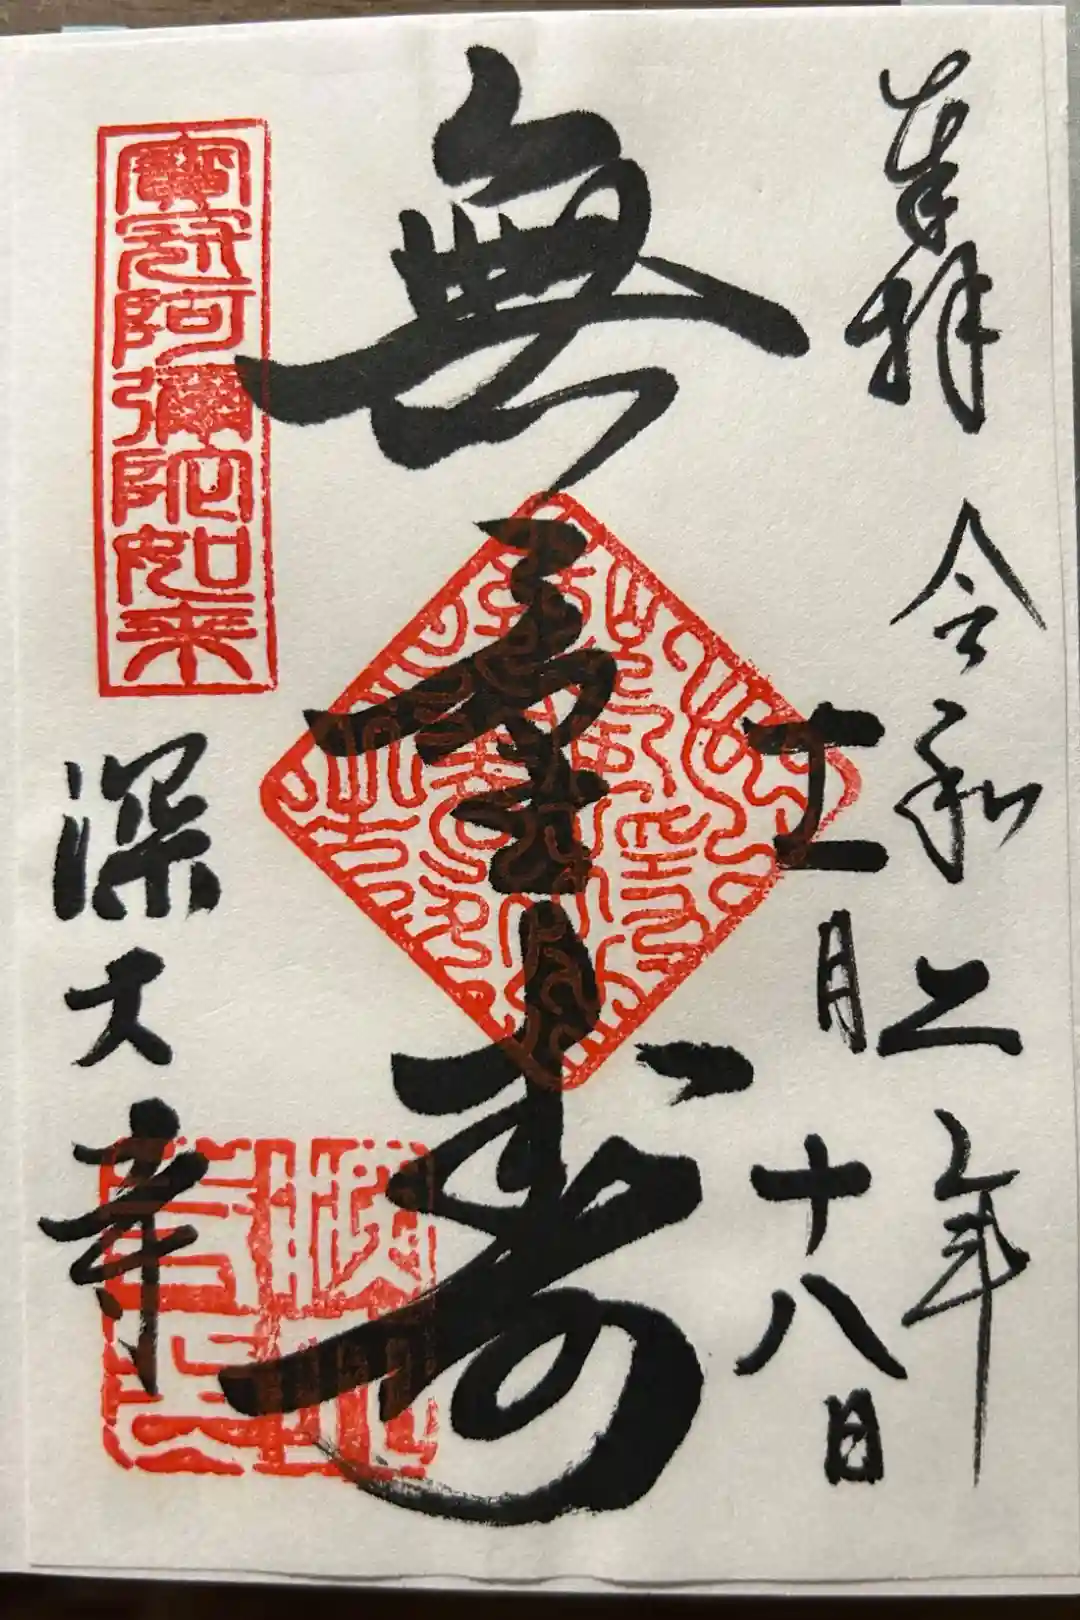 奉拝
令和二年
十一月十八日
無量寿
寶冠阿彌陀如来
深大寺